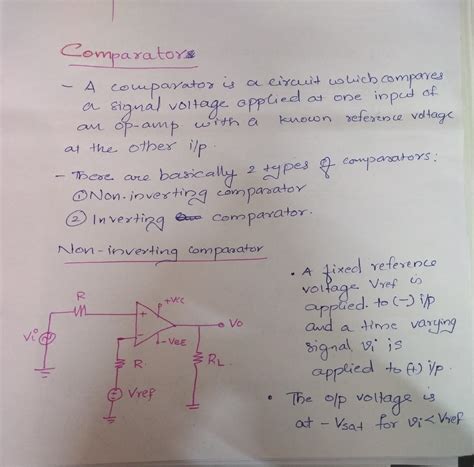 Comparators
- A comparator is a circuit which compares
a signal voltage applied at one input of
an op-amp with a known reference voltage
at the other i/p.
- There are basically 2 types of comparators:
① Non-inverting comparator
② Inverting comparator.
Non-inverting comparator
R
+VCC
+
-
Vo
-VEE
Vi
R
RL
Vref
• A fixed reference
voltage Vref is
applied to (-) i/p
and a time varying
signal vi is
applied to (+) i/p.
• The o/p voltage is
at -Vsat for vi < Vref